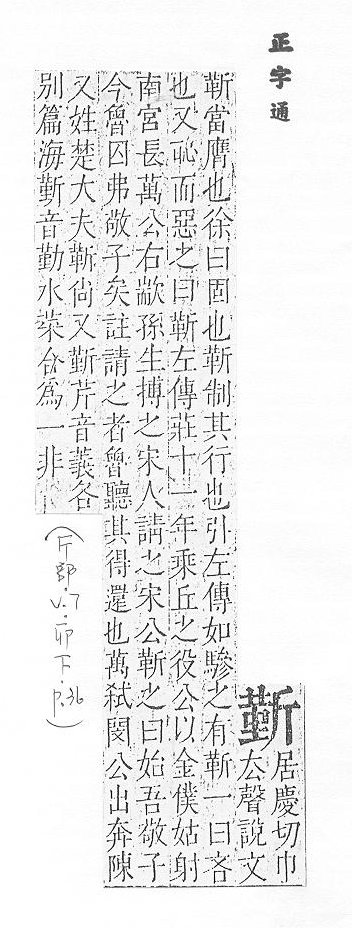 正字通
靳
居慶切巾
厺聲說文
靳當膺也徐曰固也靳制其行也引左傳如驂之有靳一曰吝
也又恥而惡之曰靳左傳莊十一年乘丘之役公以金僕姑射
南宮長萬公右歂孫生搏之宋人請之宋公靳之曰始吾敬子
今魯囚弗敬子矣註請之者魯聽其得還也萬弒閔公出奔陳
又姓楚大夫靳尙又斳芹音義各
別篇海斳音勤水菜合爲一非
(斤部.V.7.卯下.p.36)